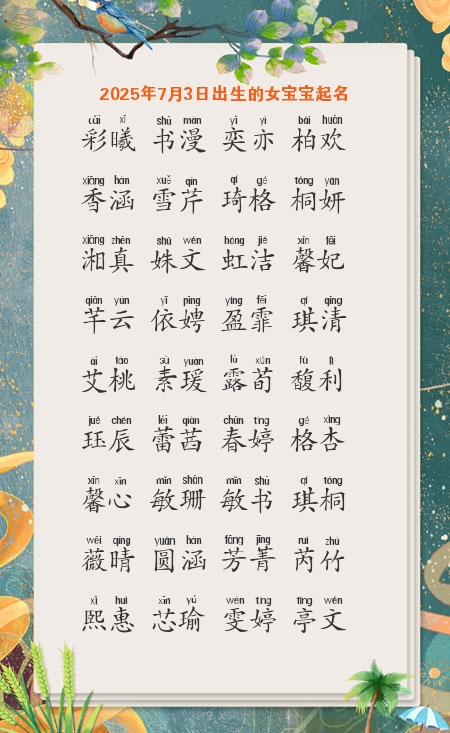 2025年7月3日出生的女宝宝起名
cǎi xī shū màn yì yì bǎi huān
彩曦 书漫 奕亦 柏欢
xiāng hán xuě qín qí gé tóng yán
香涵 雪芹 琦格 桐妍
xiāng zhēn shū wén hóng jié xīn fēi
湘真 姝文 虹洁 馨妃
qiān yún yī pīng yíng fēi qí qīng
芊云 依娉 盈霏 琪清
ài táo sù yuàn lù xún fù lì
艾桃 素瑗 露荀 馥利
jué chén lěi qiàn chūn tíng gé xìng
珏辰 蕾茜 春婷 格杏
xīn xīn mǐn shān mǐn shū qí tóng
馨心 敏珊 敏书 琪桐
wēi qíng yuán hán fāng jīng ruì zhú
薇晴 圆涵 芳菁 芮竹
xī huì xīn yú wén tíng tíng wén
熙惠 芯瑜 雯婷 亭文